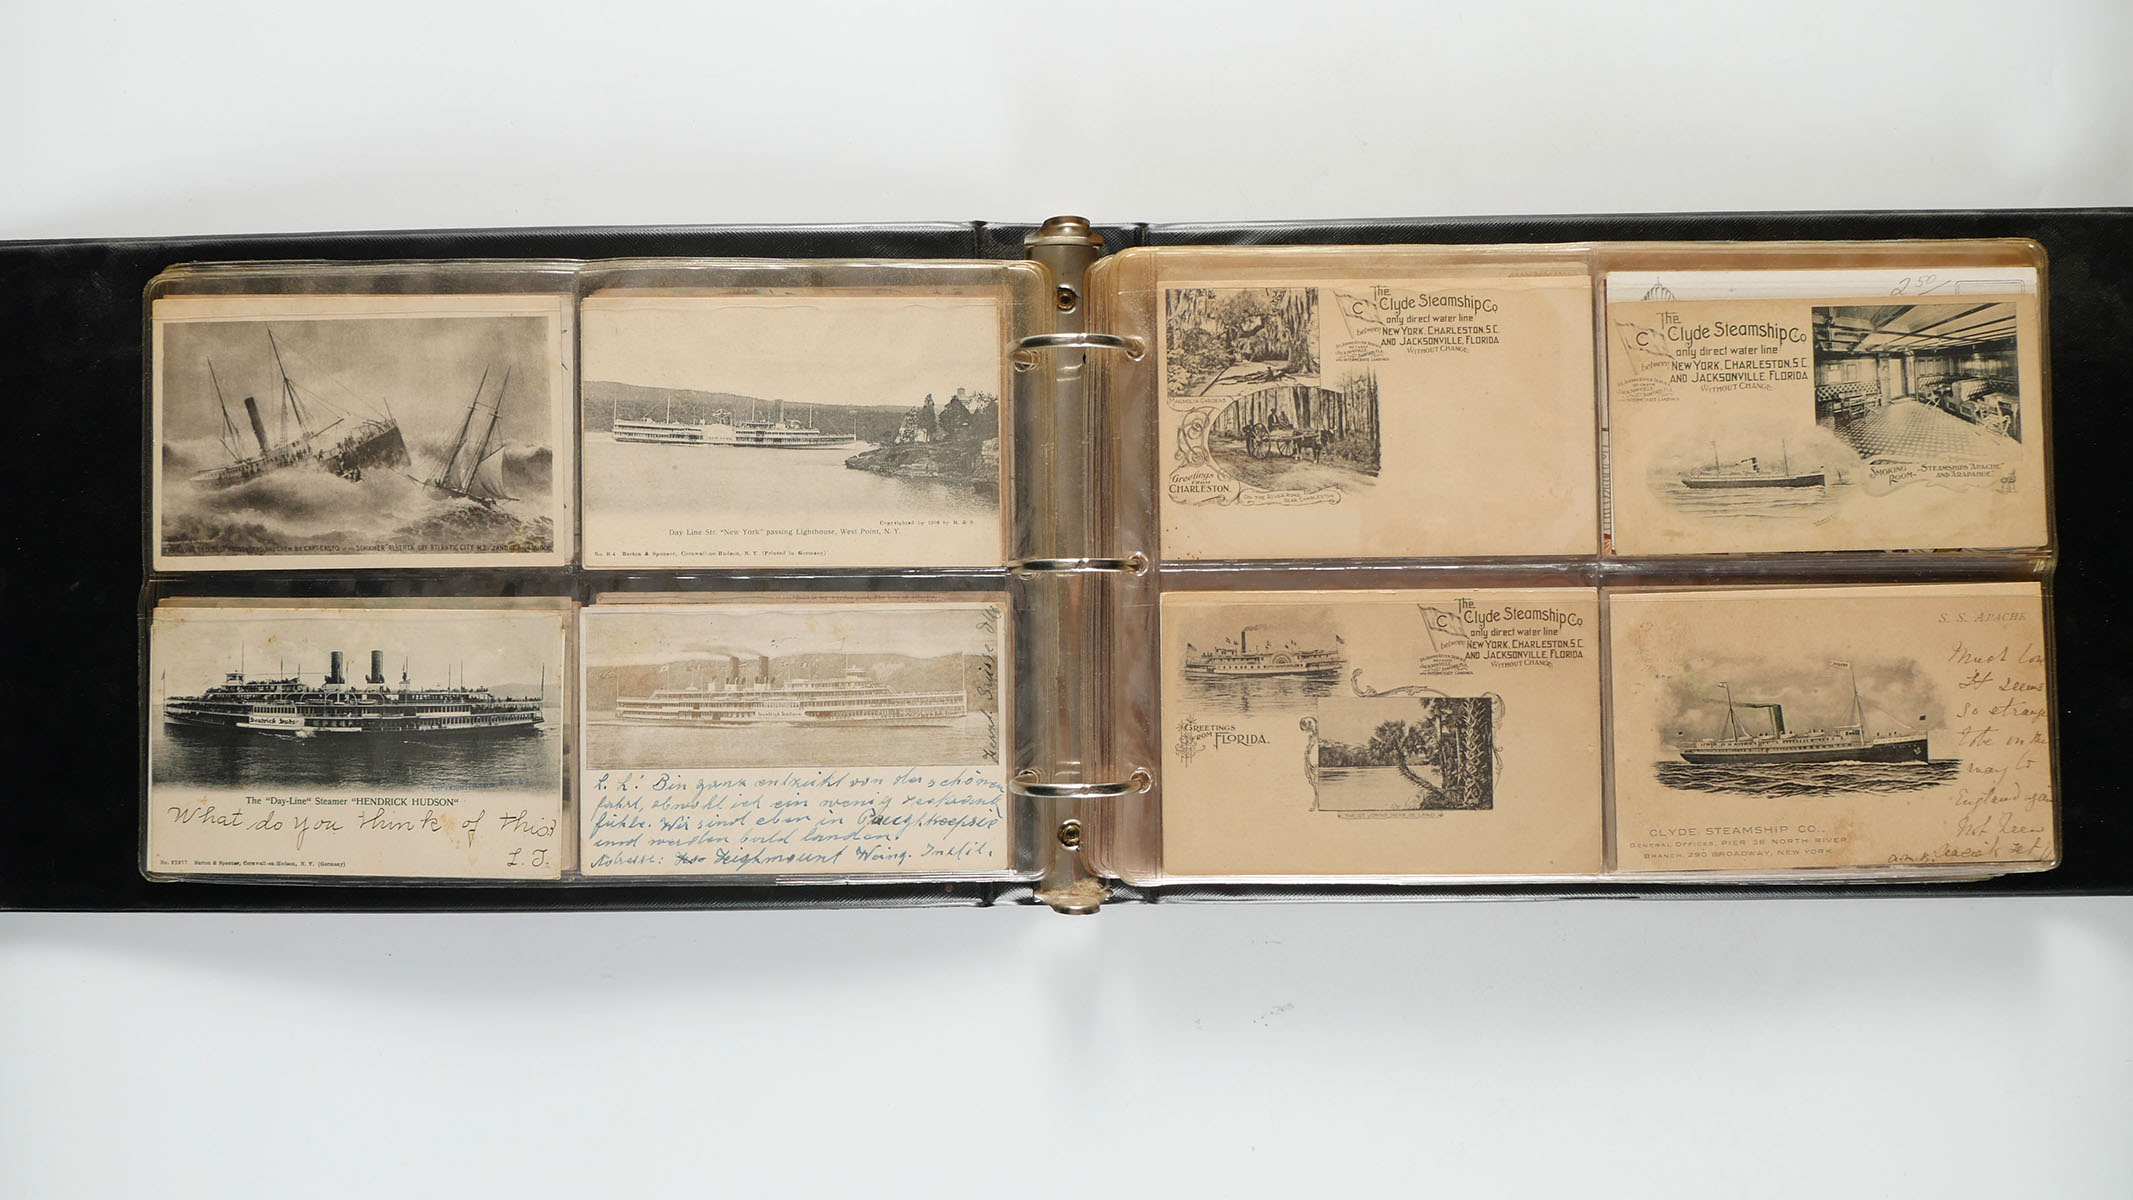 BY CAPT. CASTO OF THE SCHOONER "ALBERTA" OFF ATLANTIC CITY N.J.
Copyrighted by 1906 by B. & S.
Day Line Str. "New York" passing Lighthouse, West Point, N. Y.
No. 84 Barton & Spooner, Cornwall-on-Hudson, N. Y. (Printed in Germany)
The "Day-Line" Steamer "HENDRICK HUDSON"
What do you think of this?
L. J.
Barton & Spooner, Cornwall-on-Hudson, N. Y. (Germany)
Hendrick Hudson
L. L! Bin ganz entzückt von der schönen
fahrt, obwohl ich ein wenig
fühle. Wir sind eben in Poughkeepsie
und werden bald landen.
Adresse:
The
Clyde Steamship Co
only direct water line
between NEW YORK, CHARLESTON, S.C.
AND JACKSONVILLE, FLORIDA
WITHOUT CHANGE.
C
MAGNOLIA GARDENS
Greetings
FROM
CHARLESTON.
ON THE RIVER ROAD,
NEAR CHARLESTON.
2.50
The
Clyde Steamship Co
only direct water line
between NEW YORK, CHARLESTON, S.C.
AND JACKSONVILLE, FLORIDA
WITHOUT CHANGE.
C
SMOKING ROOM - STEAMSHIPS "APACHE"
AND "ARAPAHOE"
The
Clyde Steamship Co
only direct water line
between NEW YORK, CHARLESTON, S.C.
AND JACKSONVILLE, FLORIDA
WITHOUT CHANGE.
C
GREETINGS
FROM FLORIDA.
S. S. APACHE
Much love
It seems
so strange
to be on the
way to
England again
Not been
seasick yet
CLYDE STEAMSHIP CO.,
GENERAL OFFICES, PIER 36 NORTH RIVER
BRANCH, 290 BROADWAY, NEW YORK